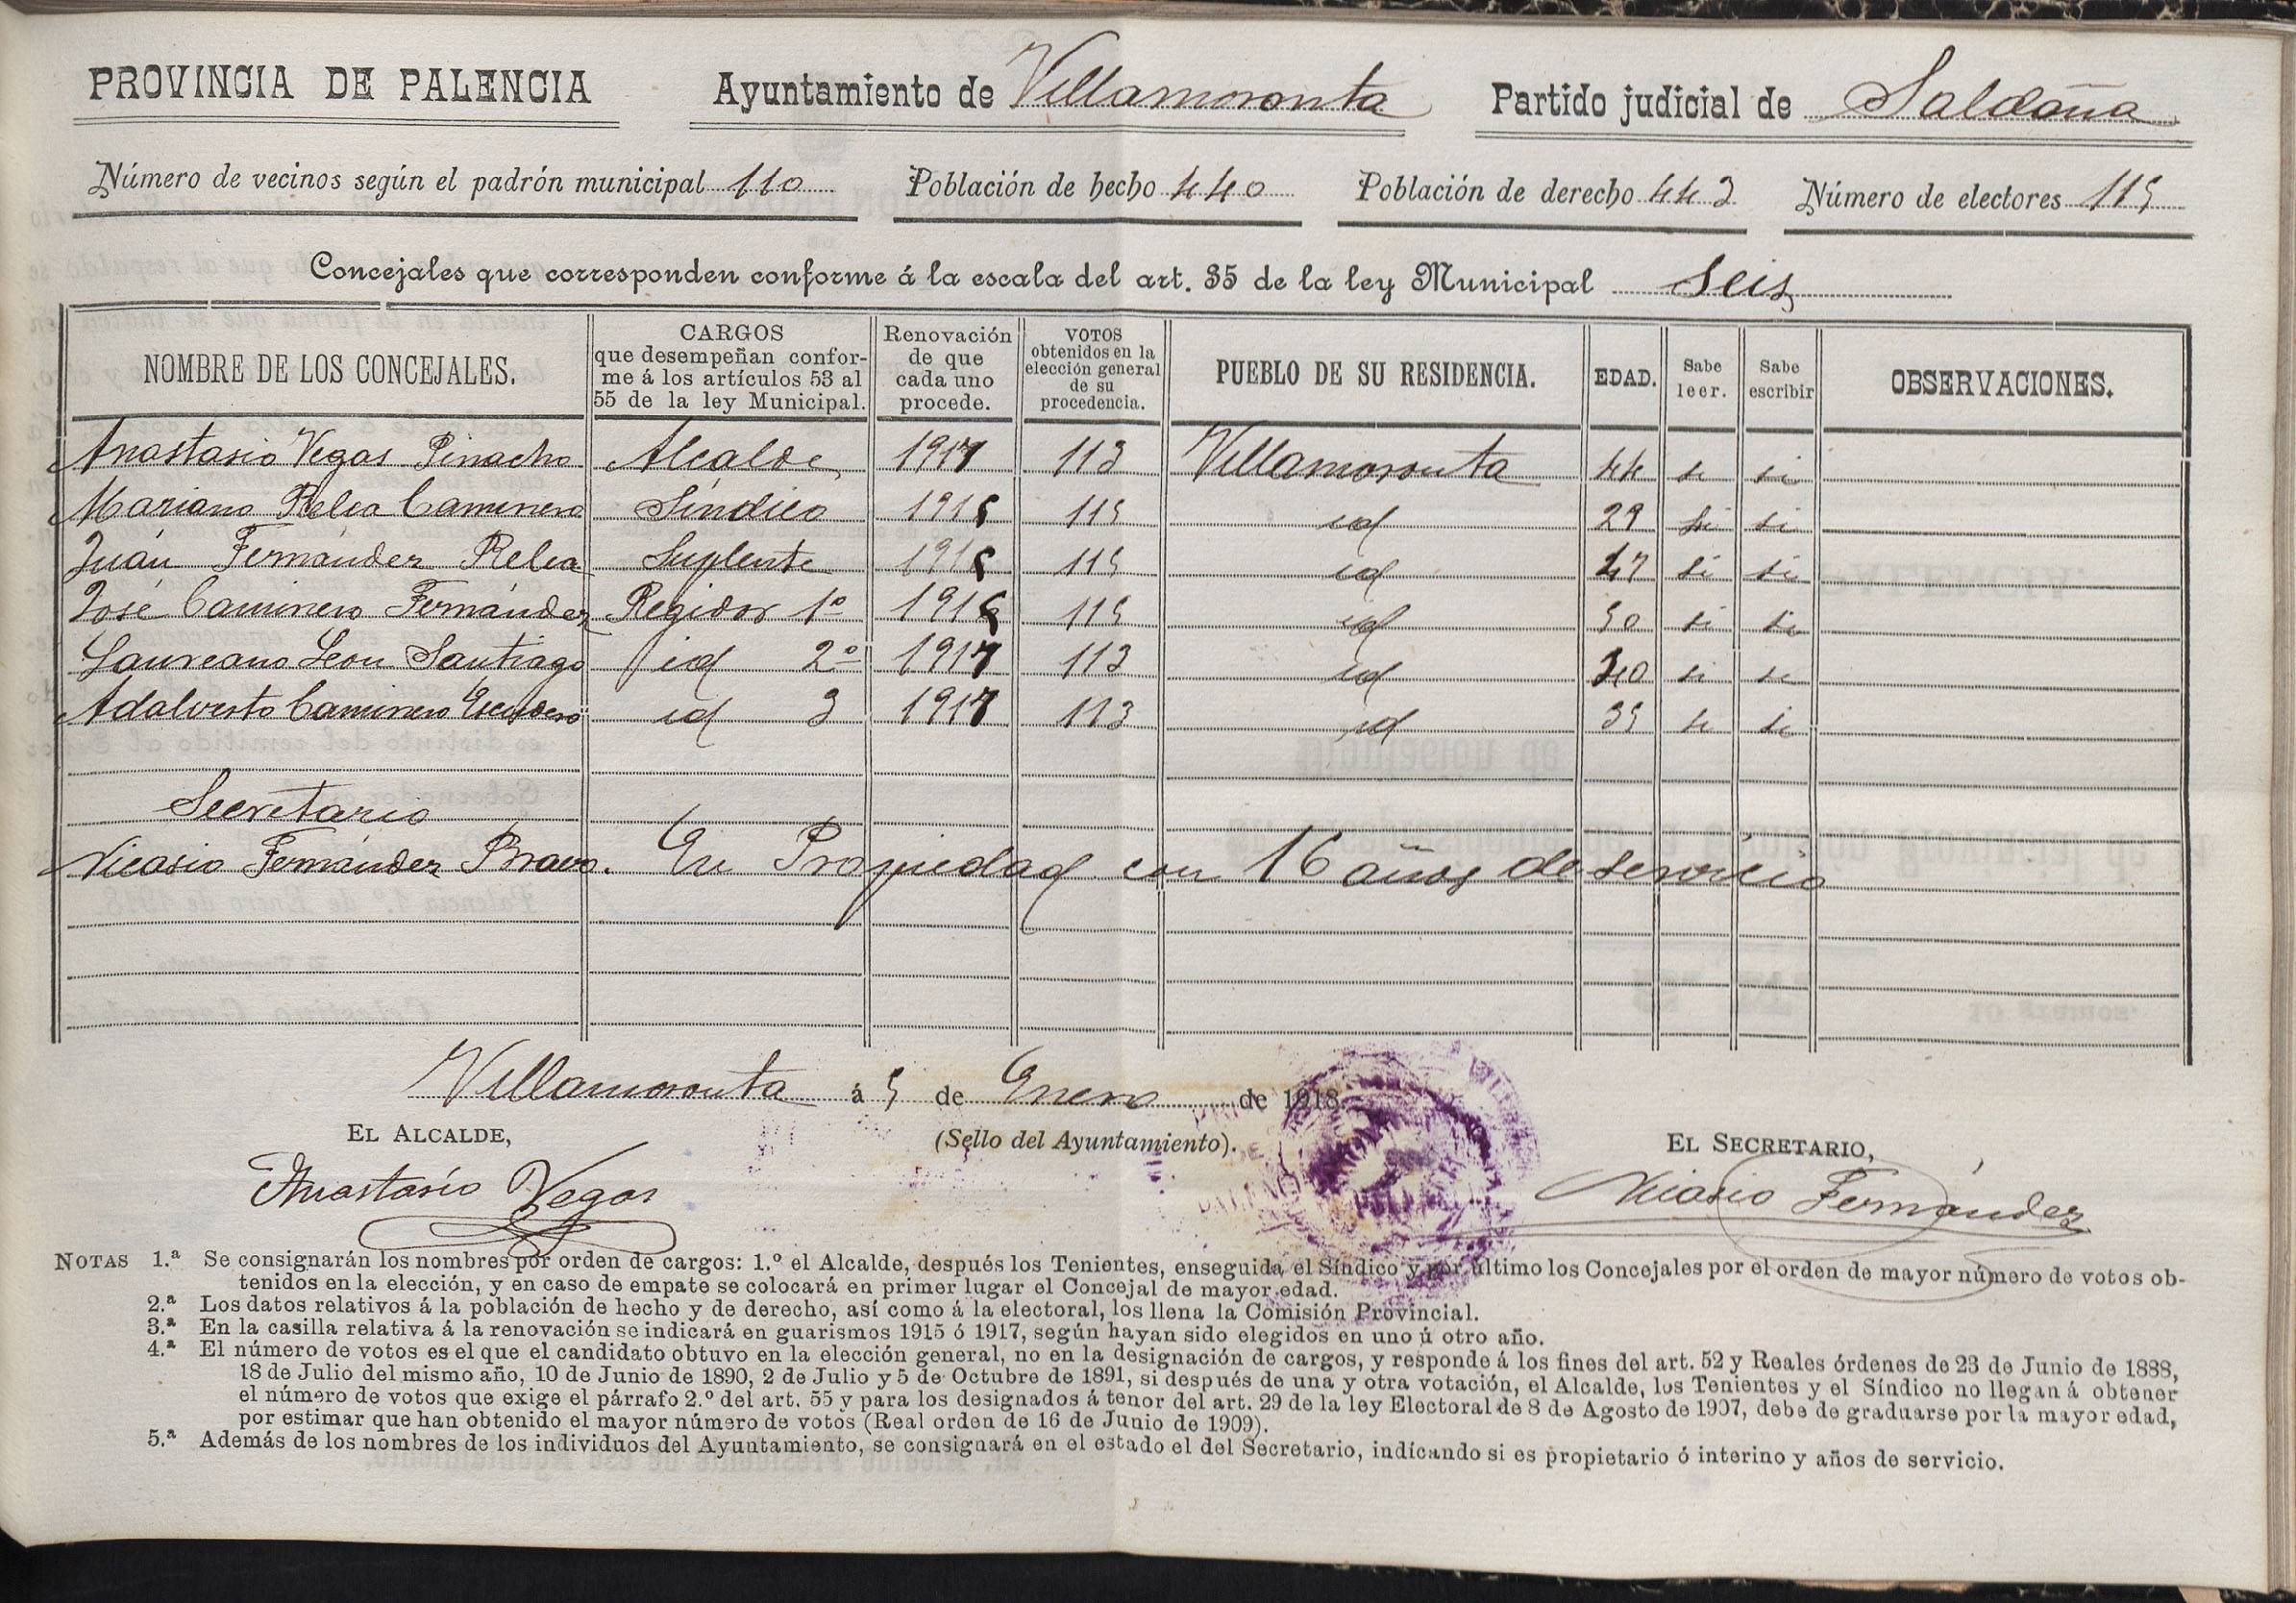 PROVINCIA DE PALENCIA Ayuntamiento de Villamoronta Partido judicial de Saldaña
Número de vecinos según el padrón municipal 110 Población de hecho 440 Población de derecho 443 Número de electores 115
Concejales que corresponden conforme á la escala del art. 35 de la ley Municipal Seis
NOMBRE DE LOS CONCEJALES. CARGOS que desempeñan conforme á los artículos 53 al 55 de la ley Municipal. Renovación de que cada uno procede. VOTOS obtenidos en la elección general de su procedencia. PUEBLO DE SU RESIDENCIA. EDAD. Sabe leer. Sabe escribir OBSERVACIONES.
Anastasio Vegas Pinacho Alcalde 1917 113 Villamoronta 44 si si
Mariano Relea Caminero Síndico 1915 115 id 29 si si
Juán Fernández Relea Suplente 1915 115 id 47 si si
José Caminero Fernández Regidor 1º 1915 115 id 50 si si
Laureano Leon Santiago id 2º 1917 113 id 40 si si
Adalverto Caminero Escudero id 3 1917 113 id 35 si si
Secretario
Nicasio Fernández Bravo. En Propiedad con 16 años de servicio
Villamoronta á 5 de Enero de 1918.
EL ALCALDE, (Sello del Ayuntamiento). EL SECRETARIO,
Anastasio Vegas Nicasio Fernández
NOTAS 1.ª Se consignarán los nombres por orden de cargos: 1.º el Alcalde, después los Tenientes, enseguida el Síndico y por último los Concejales por el orden de mayor número de votos ob-
tenidos en la elección, y en caso de empate se colocará en primer lugar el Concejal de mayor edad.
2.ª Los datos relativos á la población de hecho y de derecho, así como á la electoral, los llena la Comisión Provincial.
3.ª En la casilla relativa á la renovación se indicará en guarismos 1915 ó 1917, según hayan sido elegidos en uno ú otro año.
4.ª El número de votos es el que el candidato obtuvo en la elección general, no en la designación de cargos, y responde á los fines del art. 52 y Reales órdenes de 23 de Junio de 1888,
18 de Julio del mismo año, 10 de Junio de 1890, 2 de Julio y 5 de Octubre de 1891, si después de una y otra votación, el Alcalde, los Tenientes y el Síndico no llegan á obtener
el número de votos que exige el párrafo 2.º del art. 55 y para los designados á tenor del art. 29 de la ley Electoral de 8 de Agosto de 1907, debe de graduarse por la mayor edad,
por estimar que han obtenido el mayor número de votos (Real orden de 16 de Junio de 1909).
5.ª Además de los nombres de los individuos del Ayuntamiento, se consignará en el estado el del Secretario, indicando si es propietario ó interino y años de servicio.